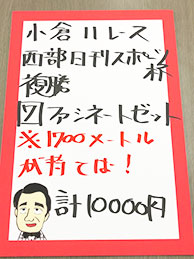 小倉11レース
西部日刊スポーツ杯
複勝
⑦ファシネートゼット
※1700メートル
が持ては！
計10000円